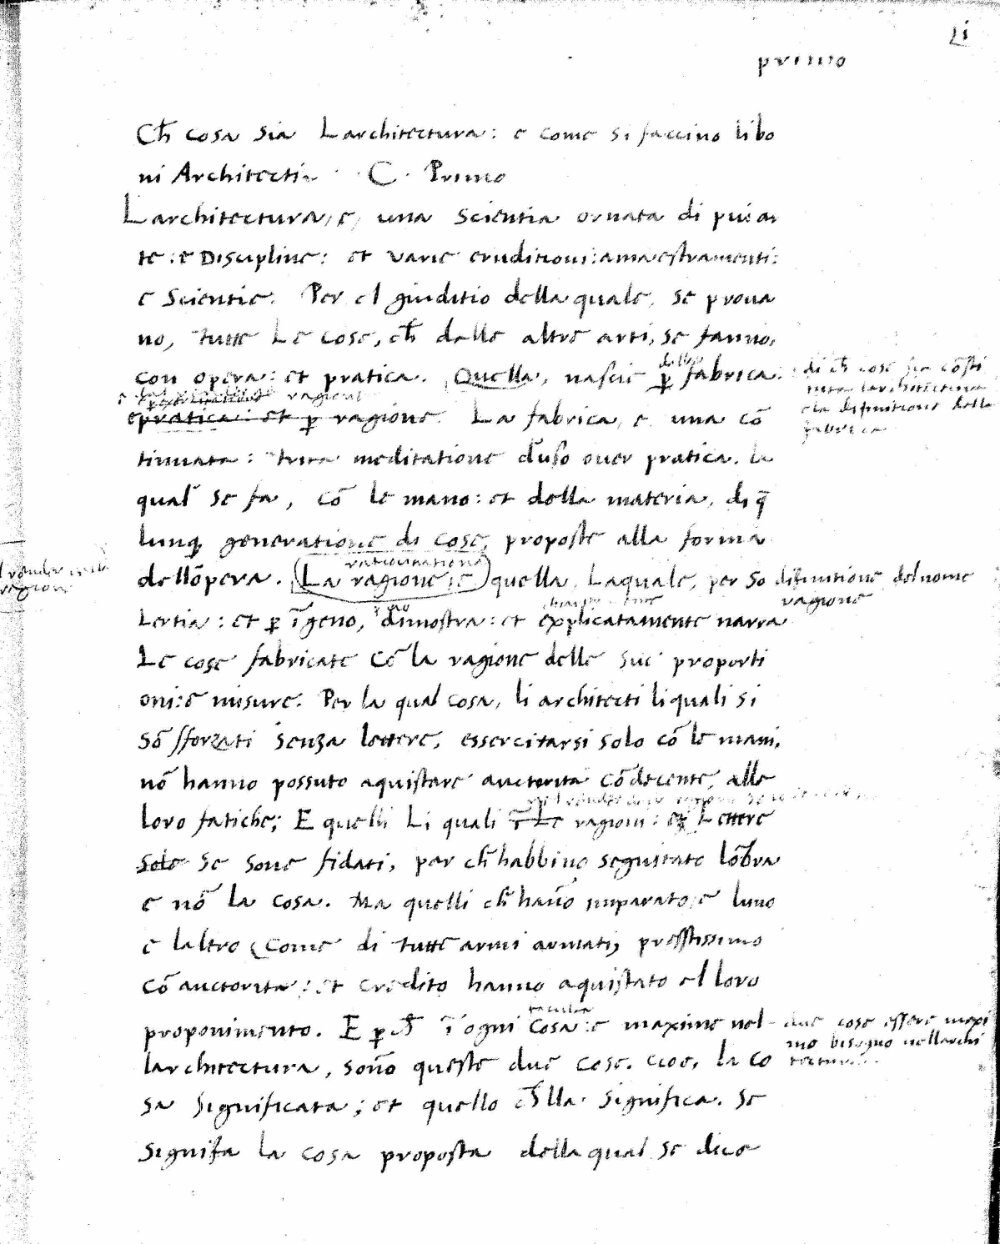 primo
Ch̄ cosa sia Larchitectura: e come si faccino li bo
ni Architecti. C. Primo
Larchitectura, e, una scientia ornata di piu ar
te: e Discipline: et varie eruditioni: amaestramenti:
e scientie. Per el giuditio della quale, se prova
no, tutte Le cose, ch̄ dalle altre arti, se fanno,
con opera: et pratica. Quella, nascie p̄ fabrica.
di ch̄ cose sia cōsti
tuita larchitectura
e la difinitione della
fabrica
epratica: et p̄ ragione. La fabrica, e una cō
tinuata: trita meditatione d'uso over pratica. la
qual se fa, cō le mano: et della materia, di q̄
lunq̄ generatione di cose, proposte alla forma
ratiocinatione
dellōpera. (La ragione, e) quella. Laquale, per so
difinitione del nome
ragione
Lertia: et p̄ īgeno, dimostra: et explicatamente narra
Le cose fabricate cō la ragione delle sue proporti
oni: e misure. Per la qual cosa, li architecti li quali si
sō sforzati senza lettere, essercitarsi solo cō le mani,
nō hanno possuto aquistare auctorita cōdecente, alle
loro fatiche; E quelli Li quali ī Le ragioni: et Lettere
Sole se sone fidati, par ch̄ habbino seguitato lōbra
e nō la cosa. Ma quelli ch̄ hano imparato, e luno
e laltro (come di tutte armi armati) presstissimo
cō auctorita: et credito hanno aquistato el loro
proponimento. E p̄ ch̄ ī ogni cosa: e maxime nel
larchitectura, sono queste due cose. cioe, la co
due cose essere maxi
mo bisogno nellarchi
tectura
sa significata; et quello ch̄ lla significa. Se
signifa la cosa proposta della qual se dice